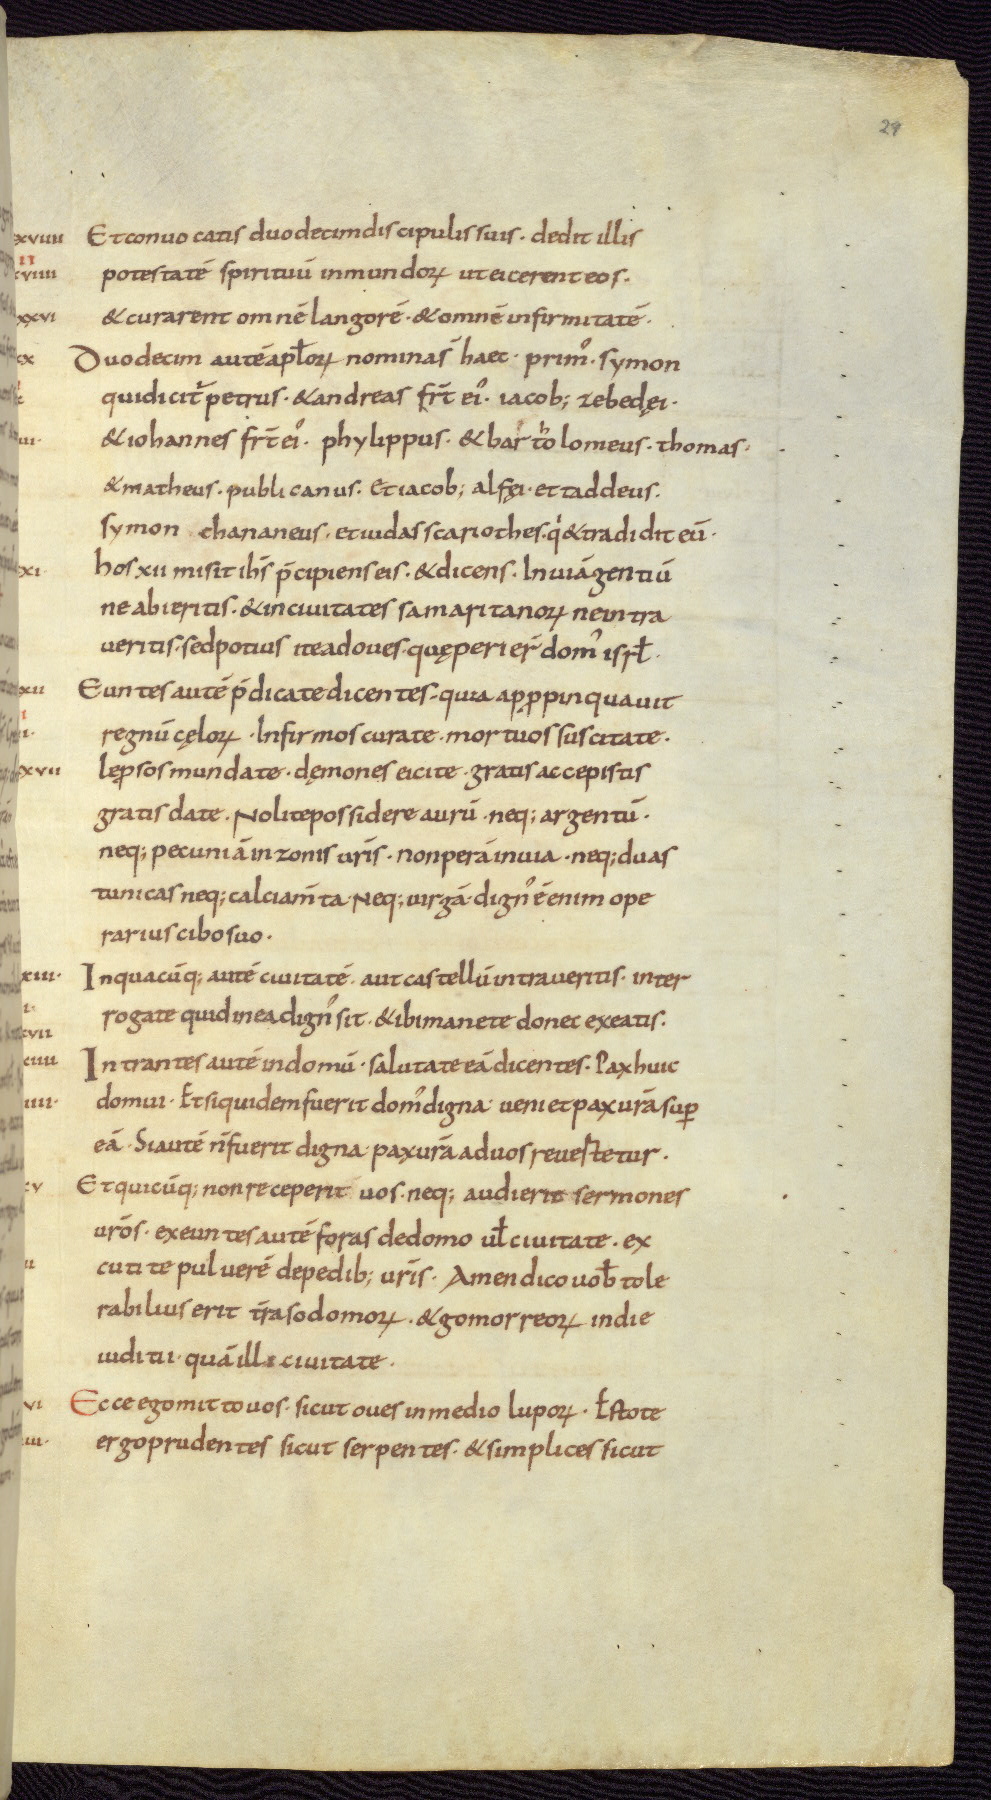 29
xviiii Et conuocatis duodecim discipulis suis · dedit illis
ii
cviiii potestatē spirituū inmundoꝝ ut eicerent eos ·
xxvi & curarent omnē langorē · & omnē infirmitatē ·
cx Duodecim autē apłoꝝ nomina s̄ haec · primꝰ · symon
qui dicit᷑ petrus · & andreas frt̄ eiꝰ · iacob; zebedęi ·
iii · & iohannes frt̄ eiꝰ · phylippus · & bartholomeus · thomas ·
& matheus · publicanus · Et iacob; alfęi · et taddeus ·
symon chananeus · et iudas scariothes · qi & tradidit eū ·
xi · hos xii misit ihs̄ p̄cipiens eis · & dicens · In uiā gentiū
ne abieritis · & in ciuitates samaritanoꝝ ne intra
ueritis · sed potius ite ad oues · quę perier̄ domꝰ isrł ·
xii Euntes autē p̄dicate dicentes · quia appropinquauit
i
i · regnū cęloꝝ · Infirmos curate · mortuos suscitate ·
xvii lęprosos mundate · dęmones eicite · gratis accepistis
gratis date · Nolite possidere aurū · neq; argentū ·
neq; pecuniā in zonis uris̄ · non perā in uia · neq; duas
tunicas neq; calciam̄ta · Neq; uirgā · dignꝰ ē enim ope
rarius cibo suo ·
xiii · In quacūq; autē ciuitatē · aut castellū intraueritis · inter
i ·
rogate quid in ea dignꝰ sit · & ibi manete donec exeatis ·
cvii
ciiii Intrantes autē in domū · salutate eā dicentes · Pax huic
iiii · domui · Et siquidem fuerit domꝰ digna · ueniet pax urā sup̄
eā · Si autē n̄ fuerit digna · pax urā ad uos reuertetur ·
cv Et quicūq; non receperit uos · neq; audierit sermones
urōs · exeuntes autē foras de domo uł ciuitate · ex
ii cutite puluerē de pedib; uris̄ · Amen dico uob̄ tole
rabilius erit tr̄a sodomoꝝ · & gomorreoꝝ in die
iuditii · quā illi ciuitate ·
vi Ecce ego mitto uos · sicut oues in medio lupoꝝ · Estote
iii · ergo prudentes sicut serpentes · & simplices sicut